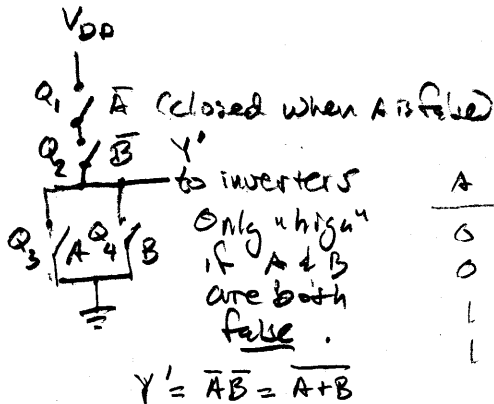 V_DD
Q₁ A̅ (closed when A is false)
Q₂ B̅ Y'
to inverters
Q₃ A Q₄ B
Only "high"
if A & B
are both
false.
Y' = A̅ B̅ = \overline{A+B}
A
0
0
1
1